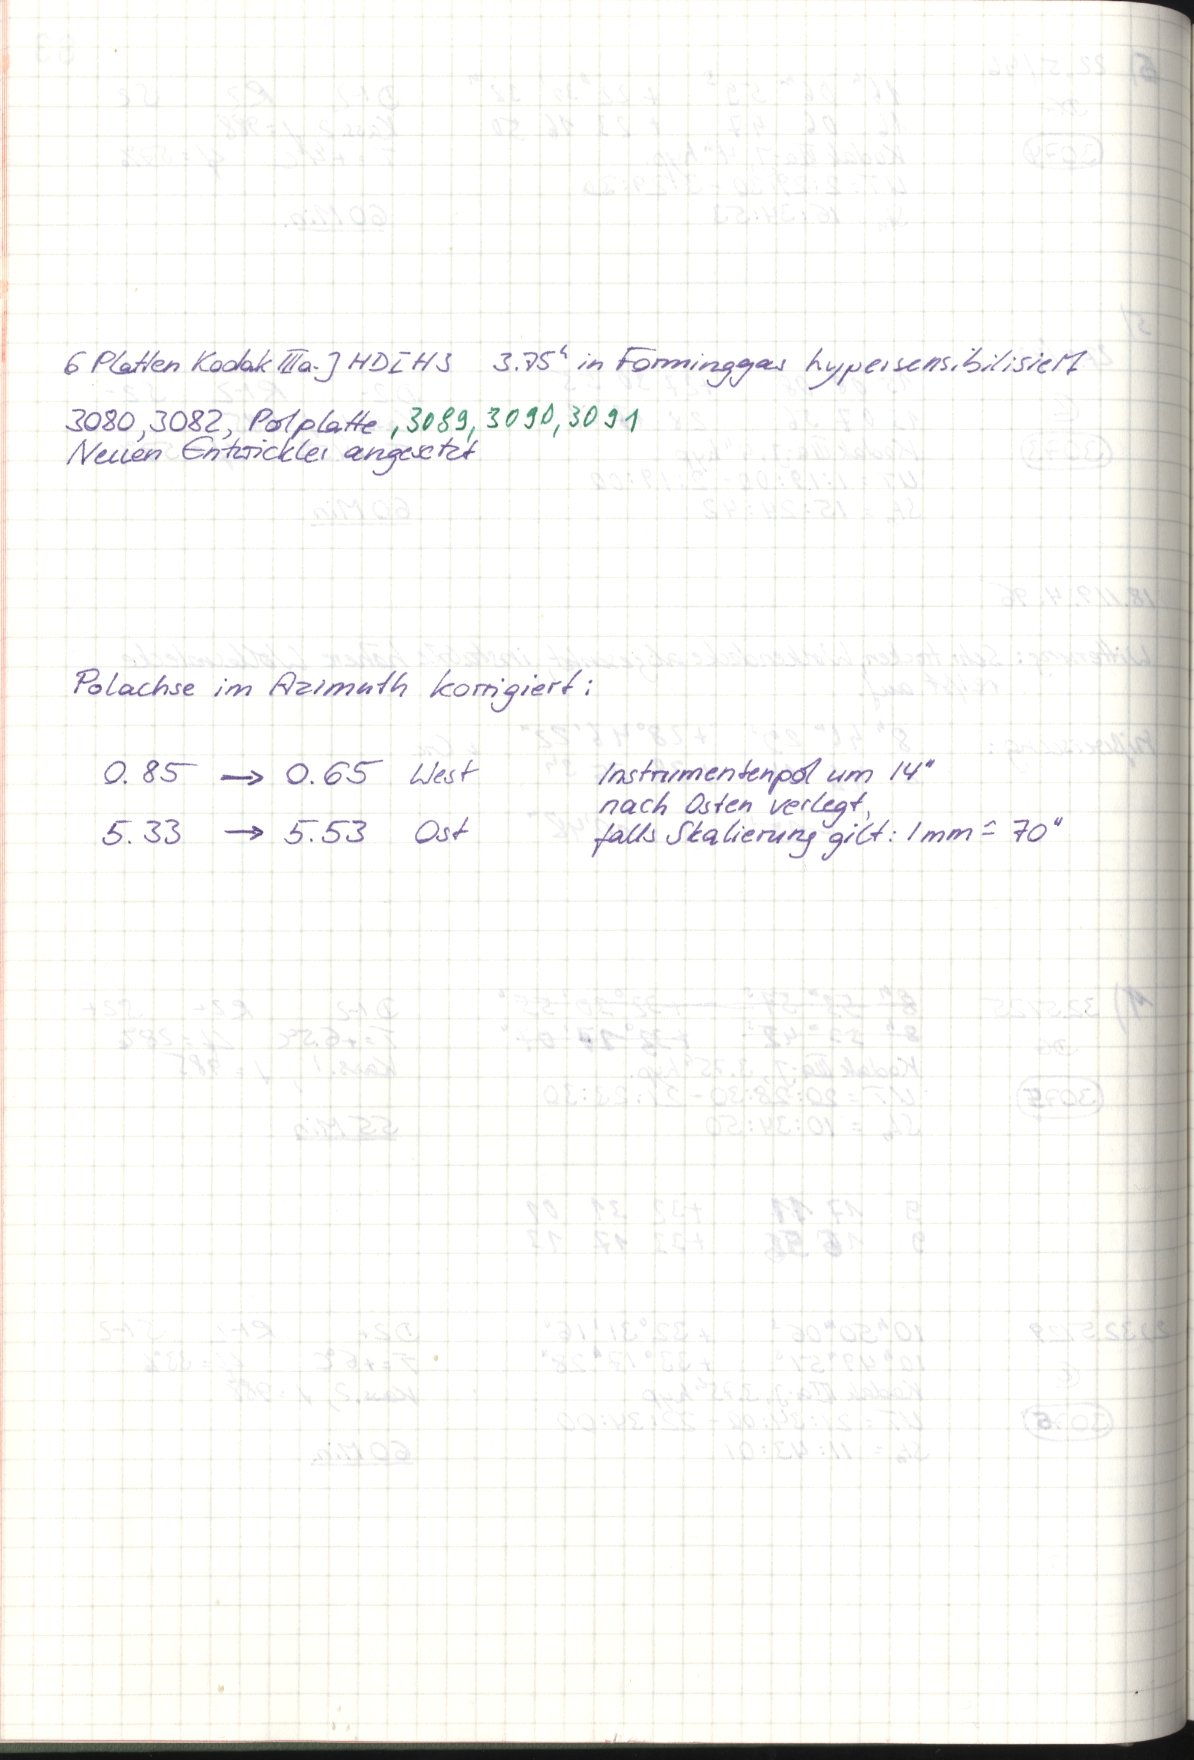 6 Platten Kodak IIIa-J HD[H3 3.75ʰ in Forminggas hypersensibilisiert
3080, 3082, Polplatte, 3089, 3090, 3091
Neuen Entwickler angesetzt
Polachse im Azimuth korrigiert:
0.85 → 0.65 West Instrumentenpol um 14"
nach Osten verlegt,
5.33 → 5.53 Ost falls Skalierung gilt: 1mm ≙ 70"